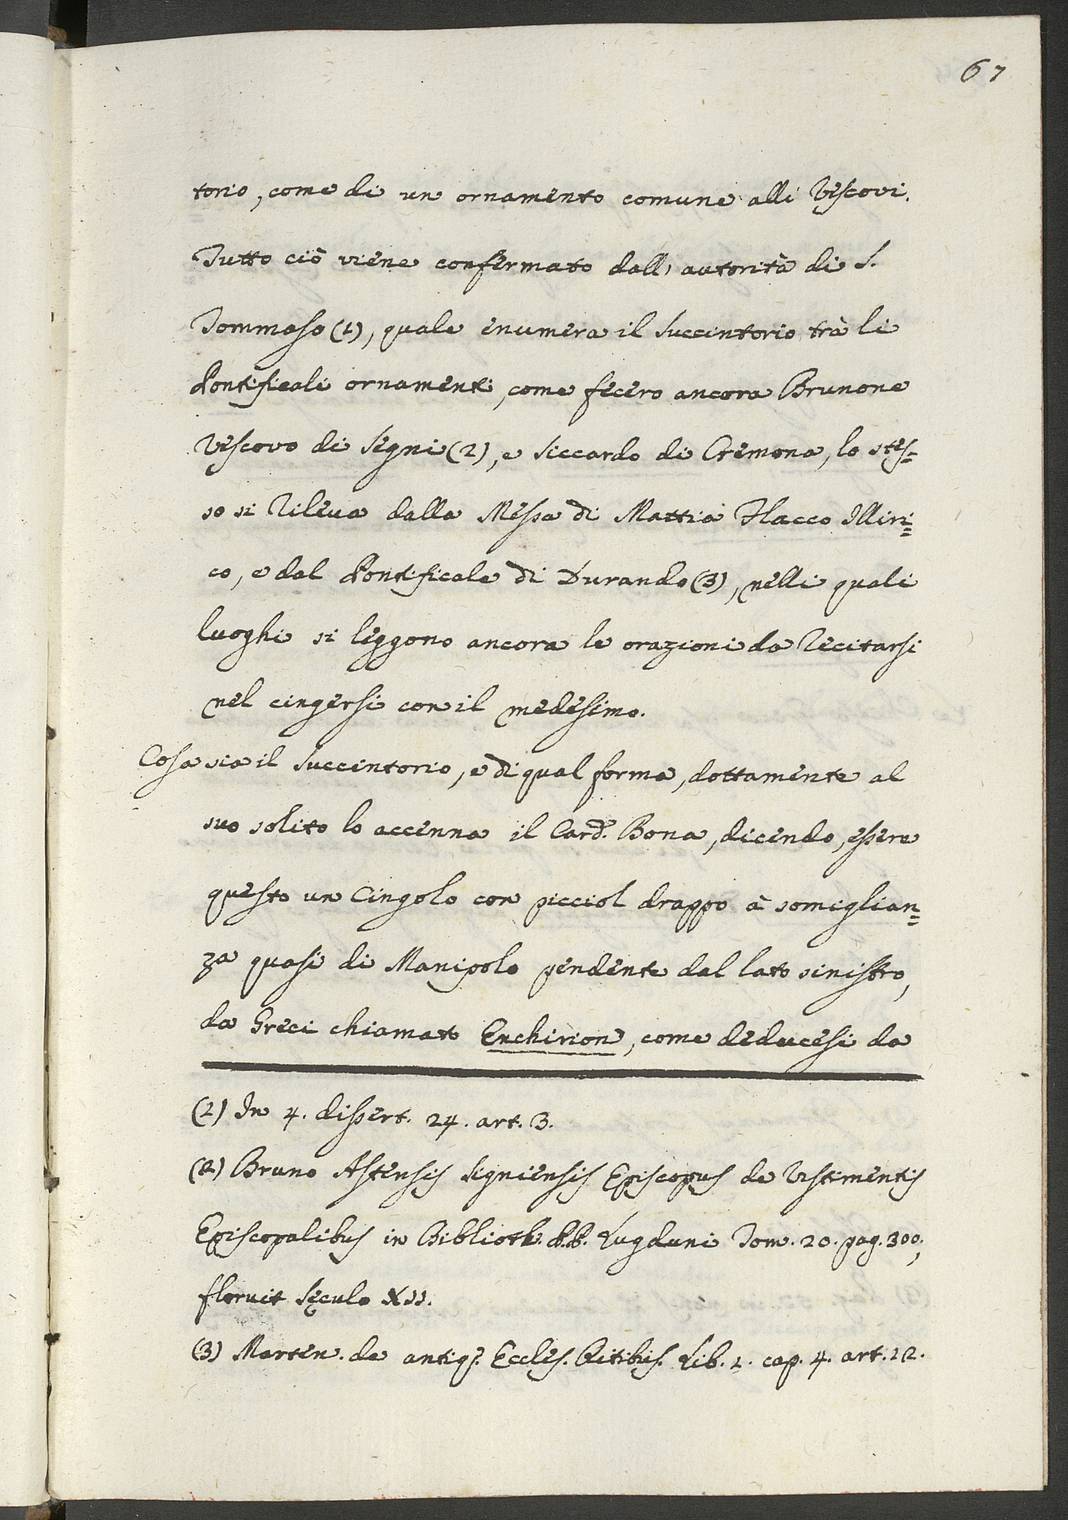 67
torio, come di un ornamento comune alli Vescovi.
Tutto ciò viene confermato dall' autorità di S.
Tommaso (1), quale enumera il Succintorio trà li
Pontificali ornamenti, come fecero ancora Brunone
Vescovo di Segni (2), e Siccardo di Cremona, lo stes=
so si rileva dalla Messa di Mattia Flacco Illiri=
co, e dal Pontificale di Durando (3), nelli quali
luoghi si leggono ancora le orazioni da recitarsi
nel cingersi con il medesimo.
Cosa sia il Succintorio, e di qual forma, dottamente al
suo solito lo accenna il Card. Bona, dicendo, essere
questo un Cingolo con picciol drappo à somiglian=
za quasi di Manipolo pendente dal lato sinistro,
da Greci chiamato Enchirion, come deducesi da
(1) In 4. dissert. 24. art. 3.
(2) Bruno Astensis Signiensis Episcopus de Vestimentis
Episcopalibus in Biblioth. P.P. Lugduni Tom. 20. pag. 300.,
floruit Sęculo XII.
(3) Marten. de antiq. Eccles. Ritibus. Lib. 1. cap. 4. art. 12.